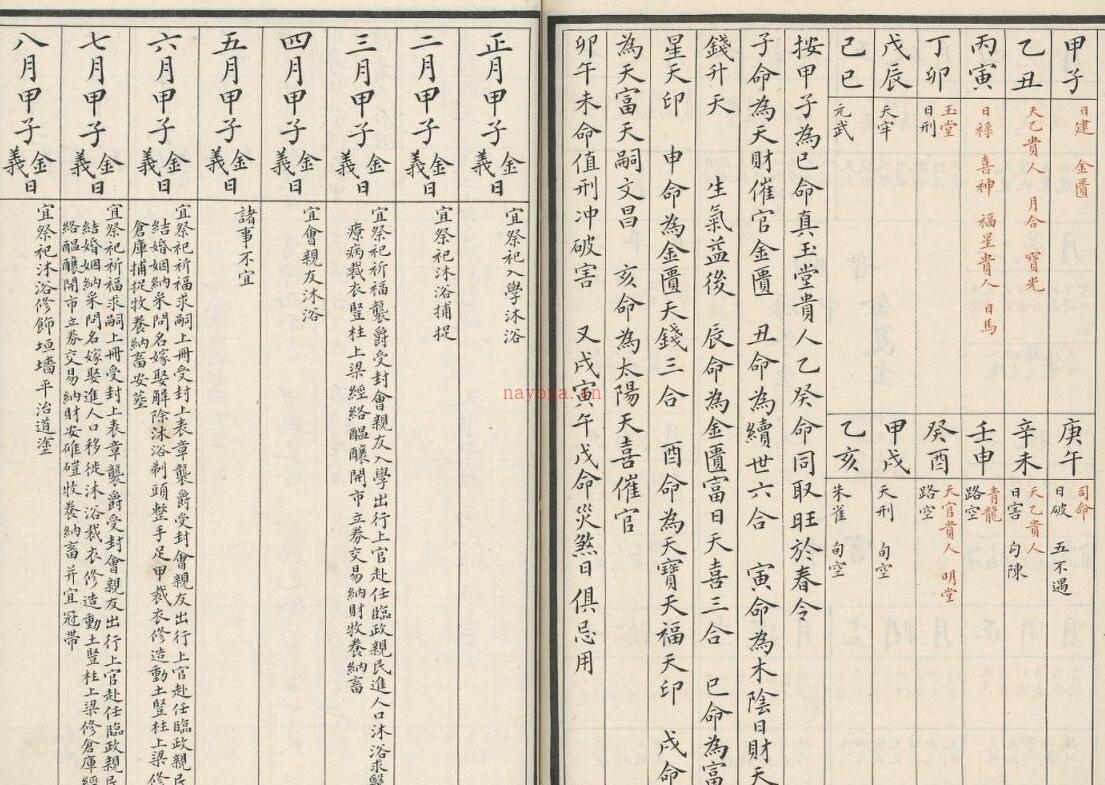 甲子 日建 金匱
乙丑 天乙貴人 月合 寶光
丙寅 日祿 喜神 福星貴人 日馬
丁卯 玉堂 日刑
戊辰 天牢
己巳 元武
庚午 司命 日破 五不遇
辛未 天乙貴人 日害 勾陳
壬申 青龍 路空
癸酉 天官貴人 明堂 路空
甲戌 天刑 旬空
乙亥 朱雀 旬空
按甲子為巳命真玉堂貴人乙癸命同取旺於春令
子命為天財催官金匱 丑命為續世六合 寅命為木陰日財天
錢升天 生氣益後 辰命為金匱富日天喜三合 巳命為富
星天印 申命為金匱天錢三合 酉命為天寶天福天印 戌命
為天富天嗣文昌 亥命為太陽天喜催官
卯午未命值刑冲破害 又戌寅午戊命災煞日俱忌用
正月甲子金義日 宜祭祀入學沐浴
二月甲子金義日 宜祭祀沐浴捕捉
三月甲子金義日 宜祭祀祈福襲爵受封會親友入學出行上官赴任臨政親民進人口沐浴求醫
療病裁衣豎柱上梁經絡醞釀開市立券交易納財牧養納畜
四月甲子金義日 宜會親友沐浴
五月甲子金義日 諸事不宜
六月甲子金義日 宜祭祀祈福求嗣上冊受封上表章襲爵受封會親友出行上官赴任臨政親民
結婚姻納采問名嫁娶解除沐浴剃頭整手足甲裁衣修造動土豎柱上梁修
倉庫捕捉牧養納畜安葬
七月甲子金義日 宜祭祀祈福求嗣上冊受封上表章襲爵受封會親友出行上官赴任臨政親民
結婚姻納采問名嫁娶進人口移徙沐浴裁衣修造動土豎柱上梁修倉庫經
絡醞釀開市立券交易納財安碓磑牧養納畜并宜冠帶
八月甲子金義日 宜祭祀沐浴修飾垣墻平治道塗
nayona.cn